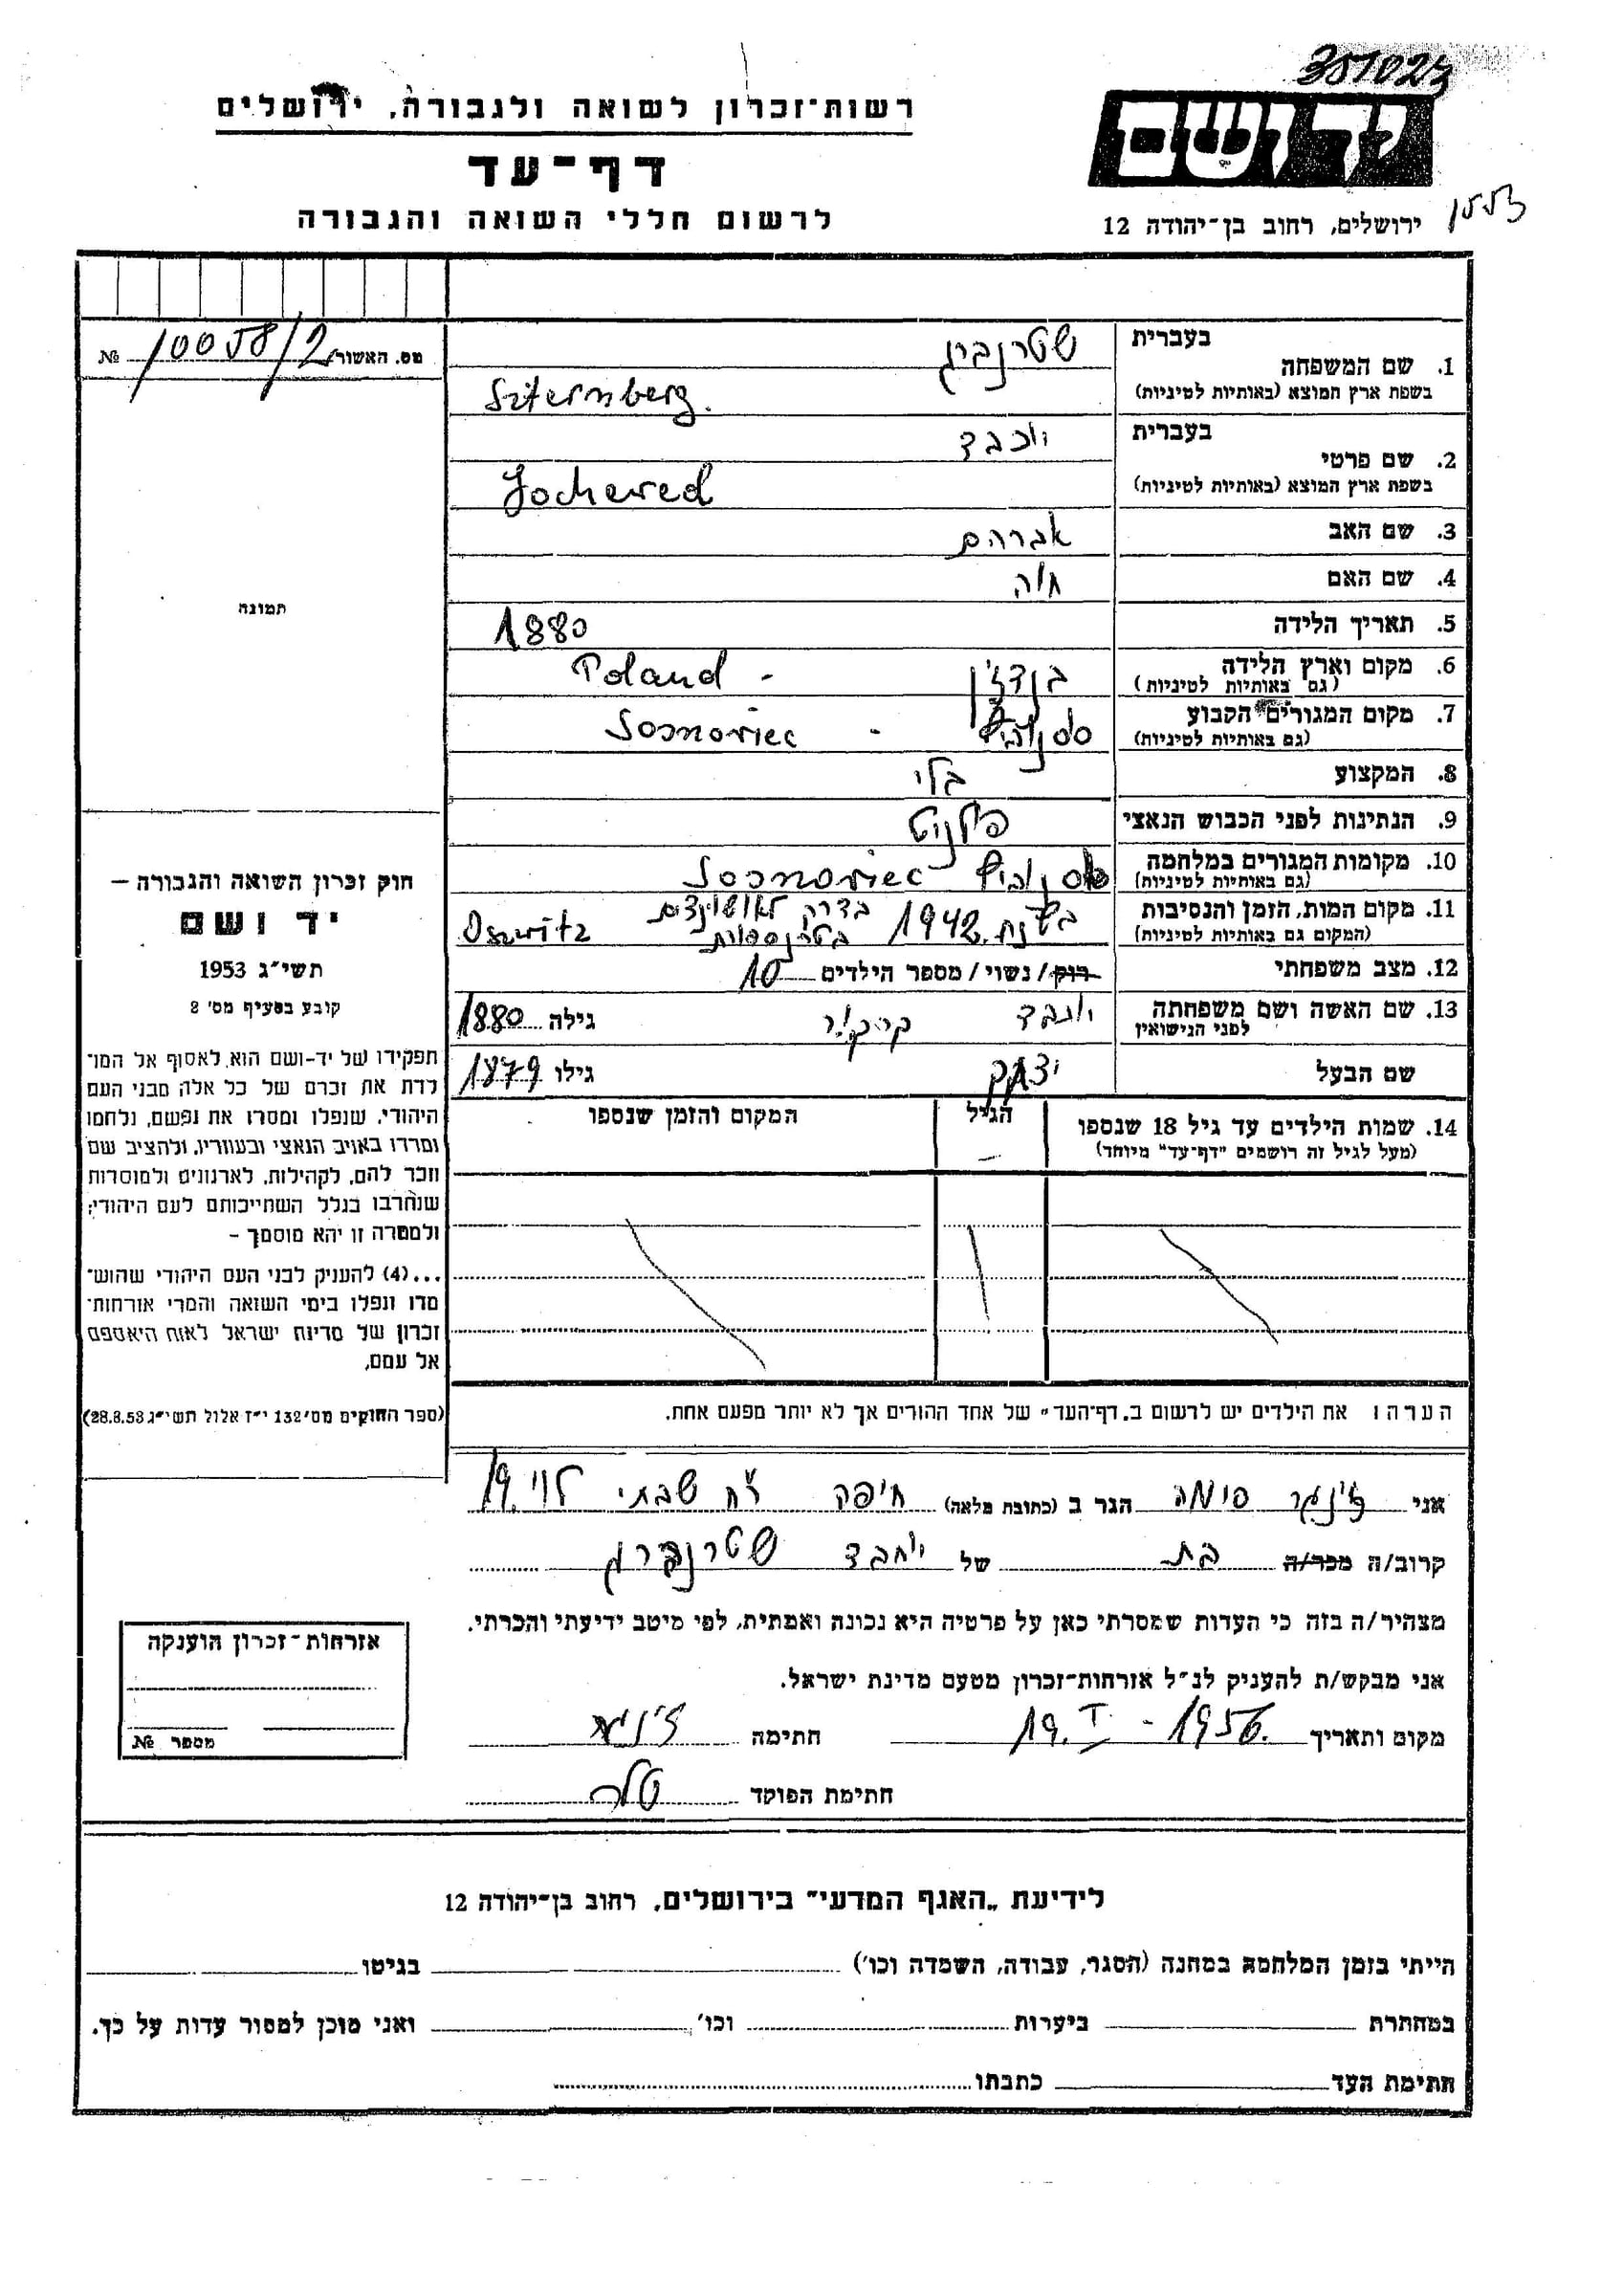 351023
רשות־זכרון לשואה ולגבורה, ירושלים
יד ושם
דף־עד
לרשום חללי השואה והגבורה
ירושלים, רחוב בן־יהודה 12
מס. האשור № 10058/2
בעברית שטרנברג
1. שם המשפחה
בשפת ארץ המוצא (באותיות לטיניות) Szternberg.
בעברית יוכבד
2. שם פרטי
בשפת ארץ המוצא (באותיות לטיניות) Jochewed
3. שם האב אברהם
4. שם האם חוה
5. תאריך הלידה 1880
6. מקום וארץ הלידה בנדז'ין - Poland
(גם באותיות לטיניות)
7. מקום המגורים הקבוע סוסנוביץ - Sosnoviec
(גם באותיות לטיניות)
8. המקצוע בלי
9. הנתינות לפני הכבוש הנאצי פולנית
10. מקומות המגורים במלחמה סוסנוביץ Sosnoviec
(גם באותיות לטיניות)
11. מקום המות, הזמן והנסיבות בשנת 1942 בדרך לאושויצים Oswitz
(המקום גם באותיות לטיניות) בטרנספורט
12. מצב משפחתי רוק/ נשוי/ מספר הילדים 10
13. שם האשה ושם משפחתה יוכבד גילה 1880
לפני הנישואין
שם הבעל יצחק גילו 1879
14. שמות הילדים עד גיל 18 שנספו הגיל המקום והזמן שנספו
(מעל לגיל זה רושמים "דף־עד" מיוחד)
תמונה
חוק זכרון השואה והגבורה –
יד ושם
תשי"ג 1953
קובע בסעיף מס' 2
תפקידו של יד־ושם הוא לאסוף אל המו־
לדת את זכרם של כל אלה מבני העם
היהודי, שנפלו ומסרו את נפשם, נלחמו
ומרדו באויב הנאצי ובעוזריו, ולהציב שם
וזכר להם, לקהילות, לארגונים ולמוסדות
שנחרבו בגלל השתייכותם לעם היהודי;
ולמטרה זו יהא מוסמך –
...(4) להעניק לבני העם היהודי שהוש־
מדו ונפלו בימי השואה והמרי אזרחות־
זכרון של מדינת ישראל לאות היאספם
אל עמם.
(ספר החוקים מס' 132 י"ז אלול תשי"ג 28.8.53)
הערה: את הילדים יש לרשום ב„דף־העד" של אחד ההורים אך לא יותר מפעם אחת.
אני הגר ב (כתובת מלאה) חיפה רח שבתי לוי 19
קרוב/ה מכר/ה בת של יוכבד שטרנברג
מצהיר/ה בזה כי העדות שמסרתי כאן על פרטיה היא נכונה ואמתית, לפי מיטב ידיעתי והכרתי.
אני מבקש/ת להעניק לנ"ל אזרחות־זכרון מטעם מדינת ישראל.
מקום ותאריך 19.I - 1956. חתימה
חתימת הפוקד
אזרחות־זכרון הוענקה
מספר №
לידיעת „האגף המדעי" בירושלים, רחוב בן־יהודה 12
הייתי בזמן המלחמה במחנה (הסגר, עבודה, השמדה וכו') בגיטו
במחתרת ביערות וכו' ואני מוכן למסור עדות על כך.
חתימת העד כתבתו